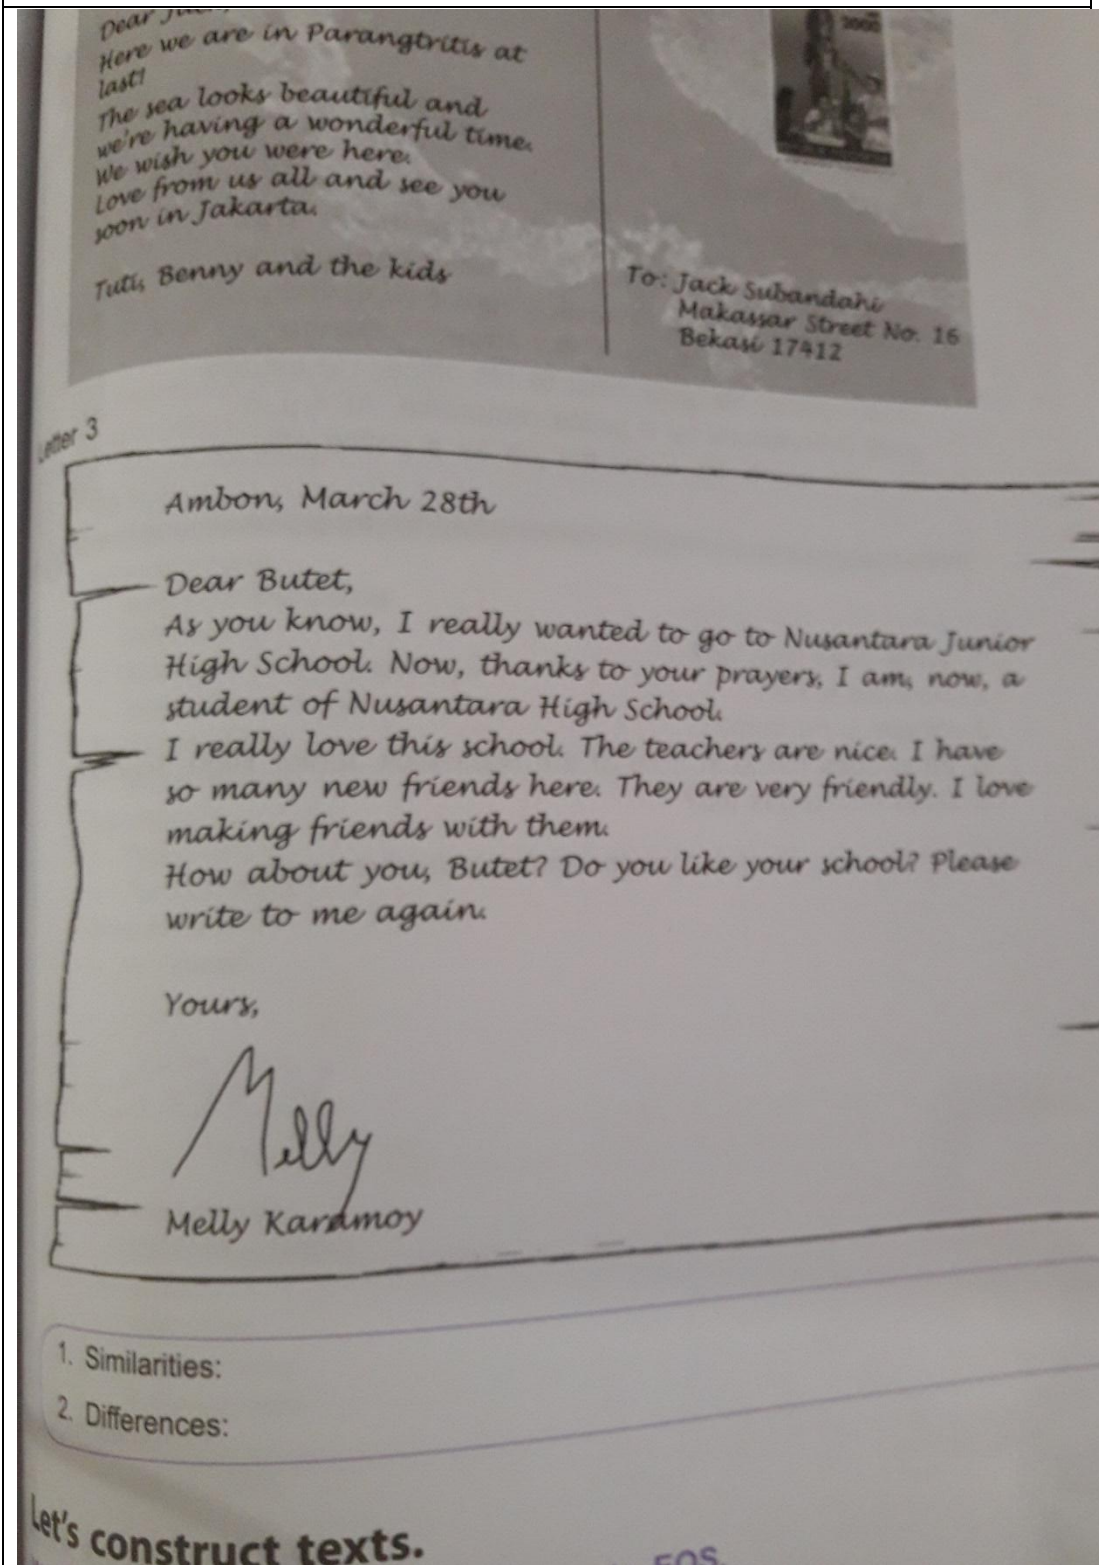 Dear
Here we are in Parangtritis at
last!
The sea looks beautiful and
we're having a wonderful time.
We wish you were here.
Love from us all and see you
soon in Jakarta.
Tuti, Benny and the kids
2000
To: Jack Subandahi
Makassar Street No. 16
Bekasi 17412
Letter 3
Ambon, March 28th
Dear Butet,
As you know, I really wanted to go to Nusantara Junior
High School. Now, thanks to your prayers, I am, now, a
student of Nusantara High School.
I really love this school. The teachers are nice. I have
so many new friends here. They are very friendly. I love
making friends with them.
How about you, Butet? Do you like your school? Please
write to me again.
Yours,
Melly
Melly Karamoy
1. Similarities:
2. Differences:
Let's construct texts.
EOS